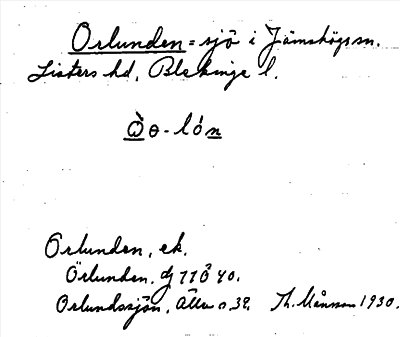 Orlunden = sjö i Jämshögs sn.
Listers hd, Blekinge l.
Òɵ - lón
Orlunden, ek.
Örlunden, dj 11Ö 40.
Orlundssjön, Älla n 39. Th. Månsson 1930.